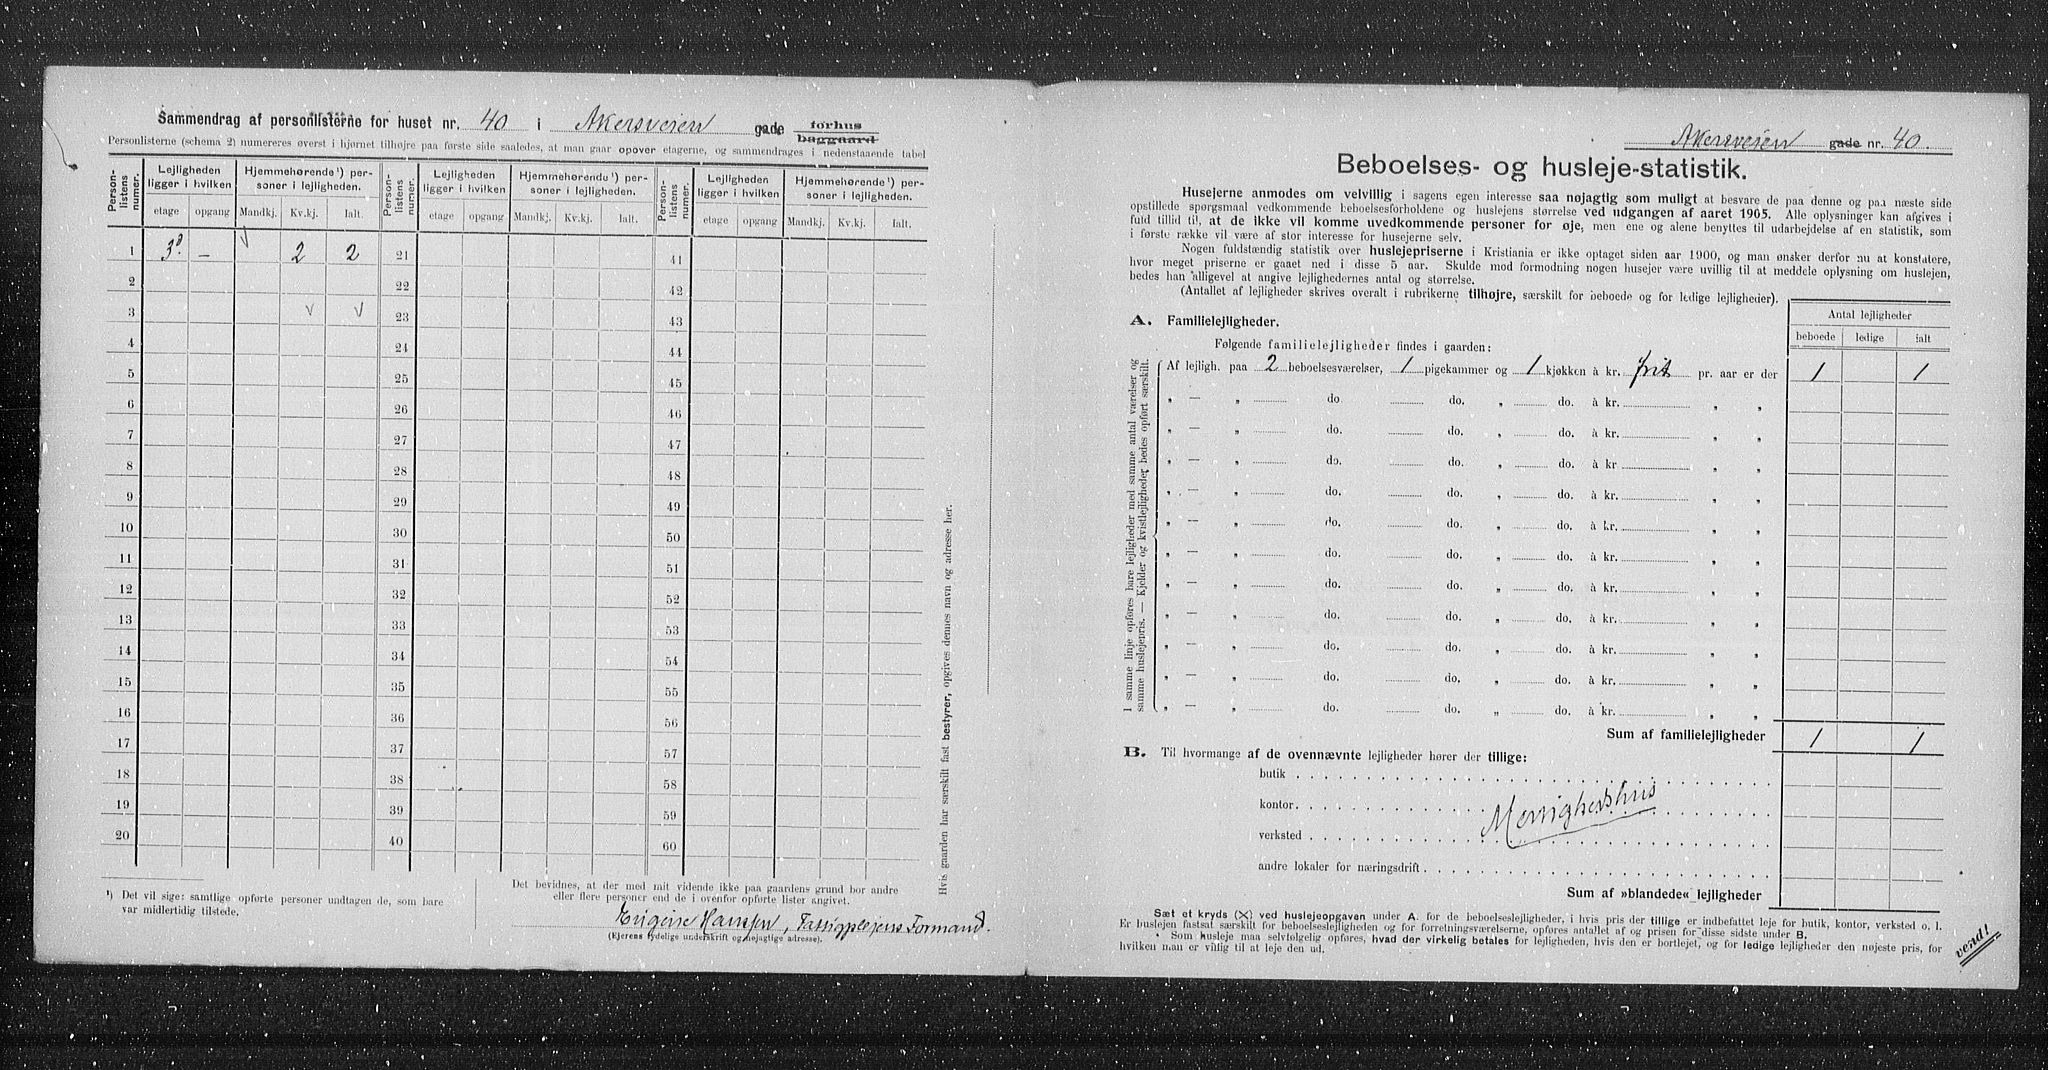 Sammendrag af personlisterne for huset nr. 40 i Akersveien gade forhus baggaard
Personlisterne (schema 2) numereres øverst i hjørnet tilhøjre paa første side saaledes, at man gaar opover etagerne, og sammendrages i nedenstaaende tabel
Person-listens numer. Lejligheden ligger i hvilken Hjemmehørende¹) personer i lejligheden. Person-listens numer. Lejligheden ligger i hvilken Hjemmehørende¹) personer i lejligheden. Person-listens numer. Lejligheden ligger i hvilken Hjemmehørende¹) personer i lejligheden.
etage opgang Mandkj. Kv.kj. Ialt. etage opgang Mandkj. Kv.kj. Ialt. etage opgang Mandkj. Kv.kj. Ialt.
1 3die – v 2 2 21 41
2 22 42
3 v v 23 43
4 24 44
5 25 45
6 26 46
7 27 47
8 28 48
9 29 49
10 30 50
11 31 51
12 32 52
13 33 53
14 34 54
15 35 55
16 36 56
17 37 57
18 38 58
19 39 59
20 40 60
¹) Det vil sige: samtlige opførte personer undtagen de, som bare
var midlertidig tilstede.
Det bevidnes, at der med mit vidende ikke paa gaardens grund bor andre
eller flere personer end de i ovenfor opførte lister angivet.
Hansen, Formand.
(Ejerens tydelige underskrift og nøjagtige adresse).
Hvis gaarden har særskilt fast bestyrer, opgives dennes navn og adresse her.
Akersveien gade nr. 40.
Beboelses- og husleje-statistik.
Husejerne anmodes om velvillig i sagens egen interesse saa nøjagtig som muligt at besvare de paa denne og paa næste side
opstillede spørgsmaal vedkommende beboelsesforholdene og huslejens størrelse ved udgangen af aaret 1905. Alle oplysninger kan afgives i
fuld tillid til, at de ikke vil komme uvedkommende personer for øje, men ene og alene benyttes til udarbejdelse af en statistik, som
i første række vil være af stor interesse for husejerne selv.
Nogen fuldstændig statistik over huslejepriserne i Kristiania er ikke optaget siden aar 1900, og man ønsker derfor nu at konstatere,
hvor meget priserne er gaaet ned i disse 5 aar. Skulde mod formodning nogen husejer være uvillig til at meddele oplysning om huslejen,
bedes han alligevel at angive lejlighedernes antal og størrelse.
(Antallet af lejligheder skrives overalt i rubrikerne tilhøjre, særskilt for beboede og for ledige lejligheder).
Antal lejligheder
beboede ledige ialt
A. Familielejligheder.
Følgende familielejligheder findes i gaarden:
I samme linje opføres bare lejligheder med samme antal værelser og
samme huslejepris. — Kjelder og kvistlejligheder bedes opført særskilt.
Af lejligh. paa 2 beboelsesværelser, 1 pigekammer og 1 kjøkken à kr. frit pr. aar er der 1 1
„ — „ do. do. „ do. à kr. „ „
„ — „ do. do. „ do. à kr. „ „
„ — „ do. do. „ do. à kr. „ „
„ — „ do. do. „ do. à kr. „ „
„ — „ do. do. „ do. à kr. „ „
„ — „ do. do. „ do. à kr. „ „
„ — „ do. do. „ do. à kr. „ „
„ — „ do. do. „ do. à kr. „ „
„ — „ do. do. „ do. à kr. „ „
„ — „ do. do. „ do. à kr. „ „
„ — „ do. do. „ do. à kr. „ „
Sum af familielejligheder 1 1
B. Til hvormange af de ovennævnte lejligheder hører der tillige:
butik
kontor.
Menighedshus
verksted
andre lokaler for næringsdrift
Sum af »blandede« lejligheder
Sæt et kryds (X) ved huslejeopgaven under A. for de beboelseslejligheder, i hvis pris der tillige er indbefattet leje for butik, kontor, verksted o. l.
Er huslejen fastsat særskilt for beboelseslejligheden og for forretningsværelserne, opføres antallet af og prisen for disse sidste under B.
Som husleje maa selvfølgelig opføres, hvad der virkelig betales for lejligheden, hvis den er bortlejet, og for ledige lejligheder den nøjeste pris, for
hvilken man er villig til at leje den ud.
vend!